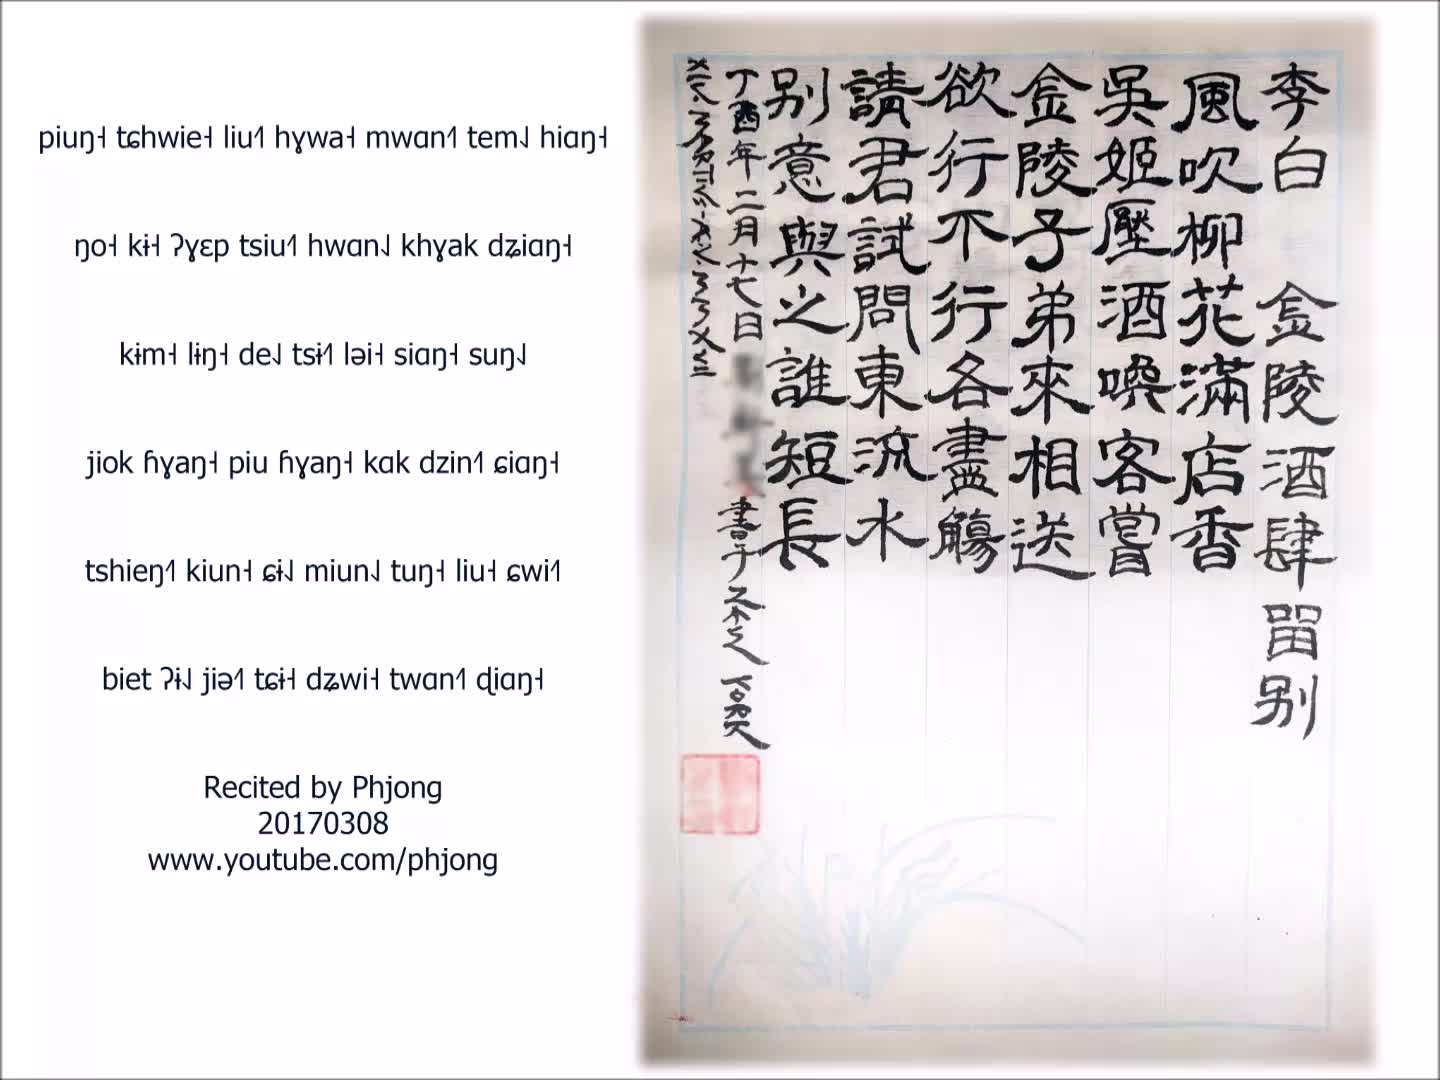 piuŋ˧ tɕhwie˧ liu˧˥ hɣwa˧ mwɑn˧˥ tem˨˩ hiɑŋ˧
ŋo˧ kɨ˧ ʔɣɛp tsiu˧˥ hwɑn˨˩ khɣak dʑiɑŋ˧
kɨm˧ lɨŋ˧ de˨˩ tsɨ˧˥ ləi˧ siɑŋ˧ suŋ˨˩
jiok ɦɣaŋ˧ piu ɦɣaŋ˧ kɑk dzin˧˥ ɕiɑŋ˧
tshieŋ˧˥ kiun˧ ɕɨ˨˩ miun˨˩ tuŋ˧ liu˧ ɕwi˧˥
biet ʔɨ˨˩ jiə˧˥ tɕɨ˧ dʑwi˧ twɑn˧˥ ɖiɑŋ˧
Recited by Phjong
20170308
www.youtube.com/phjong
李白 金陵酒肆留别
風吹柳花滿店香
吳姬壓酒喚客嘗
金陵子弟來相送
欲行不行各盡觴
請君試問東流水
别意與之誰短長
丁酉年二月十七日
書于